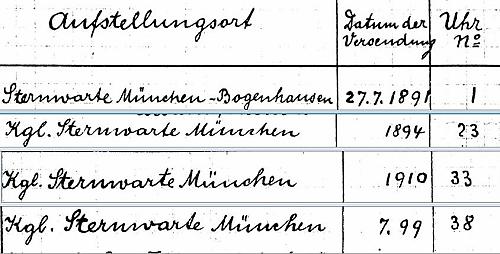 Aufstellungsort Datum der Versendung Uhr No
Sternwarte München-Bogenhausen 27.7.1891 1
Kgl. Sternwarte München 1894 23
Kgl. Sternwarte München 1910 33
Kgl. Sternwarte München 7.99 38